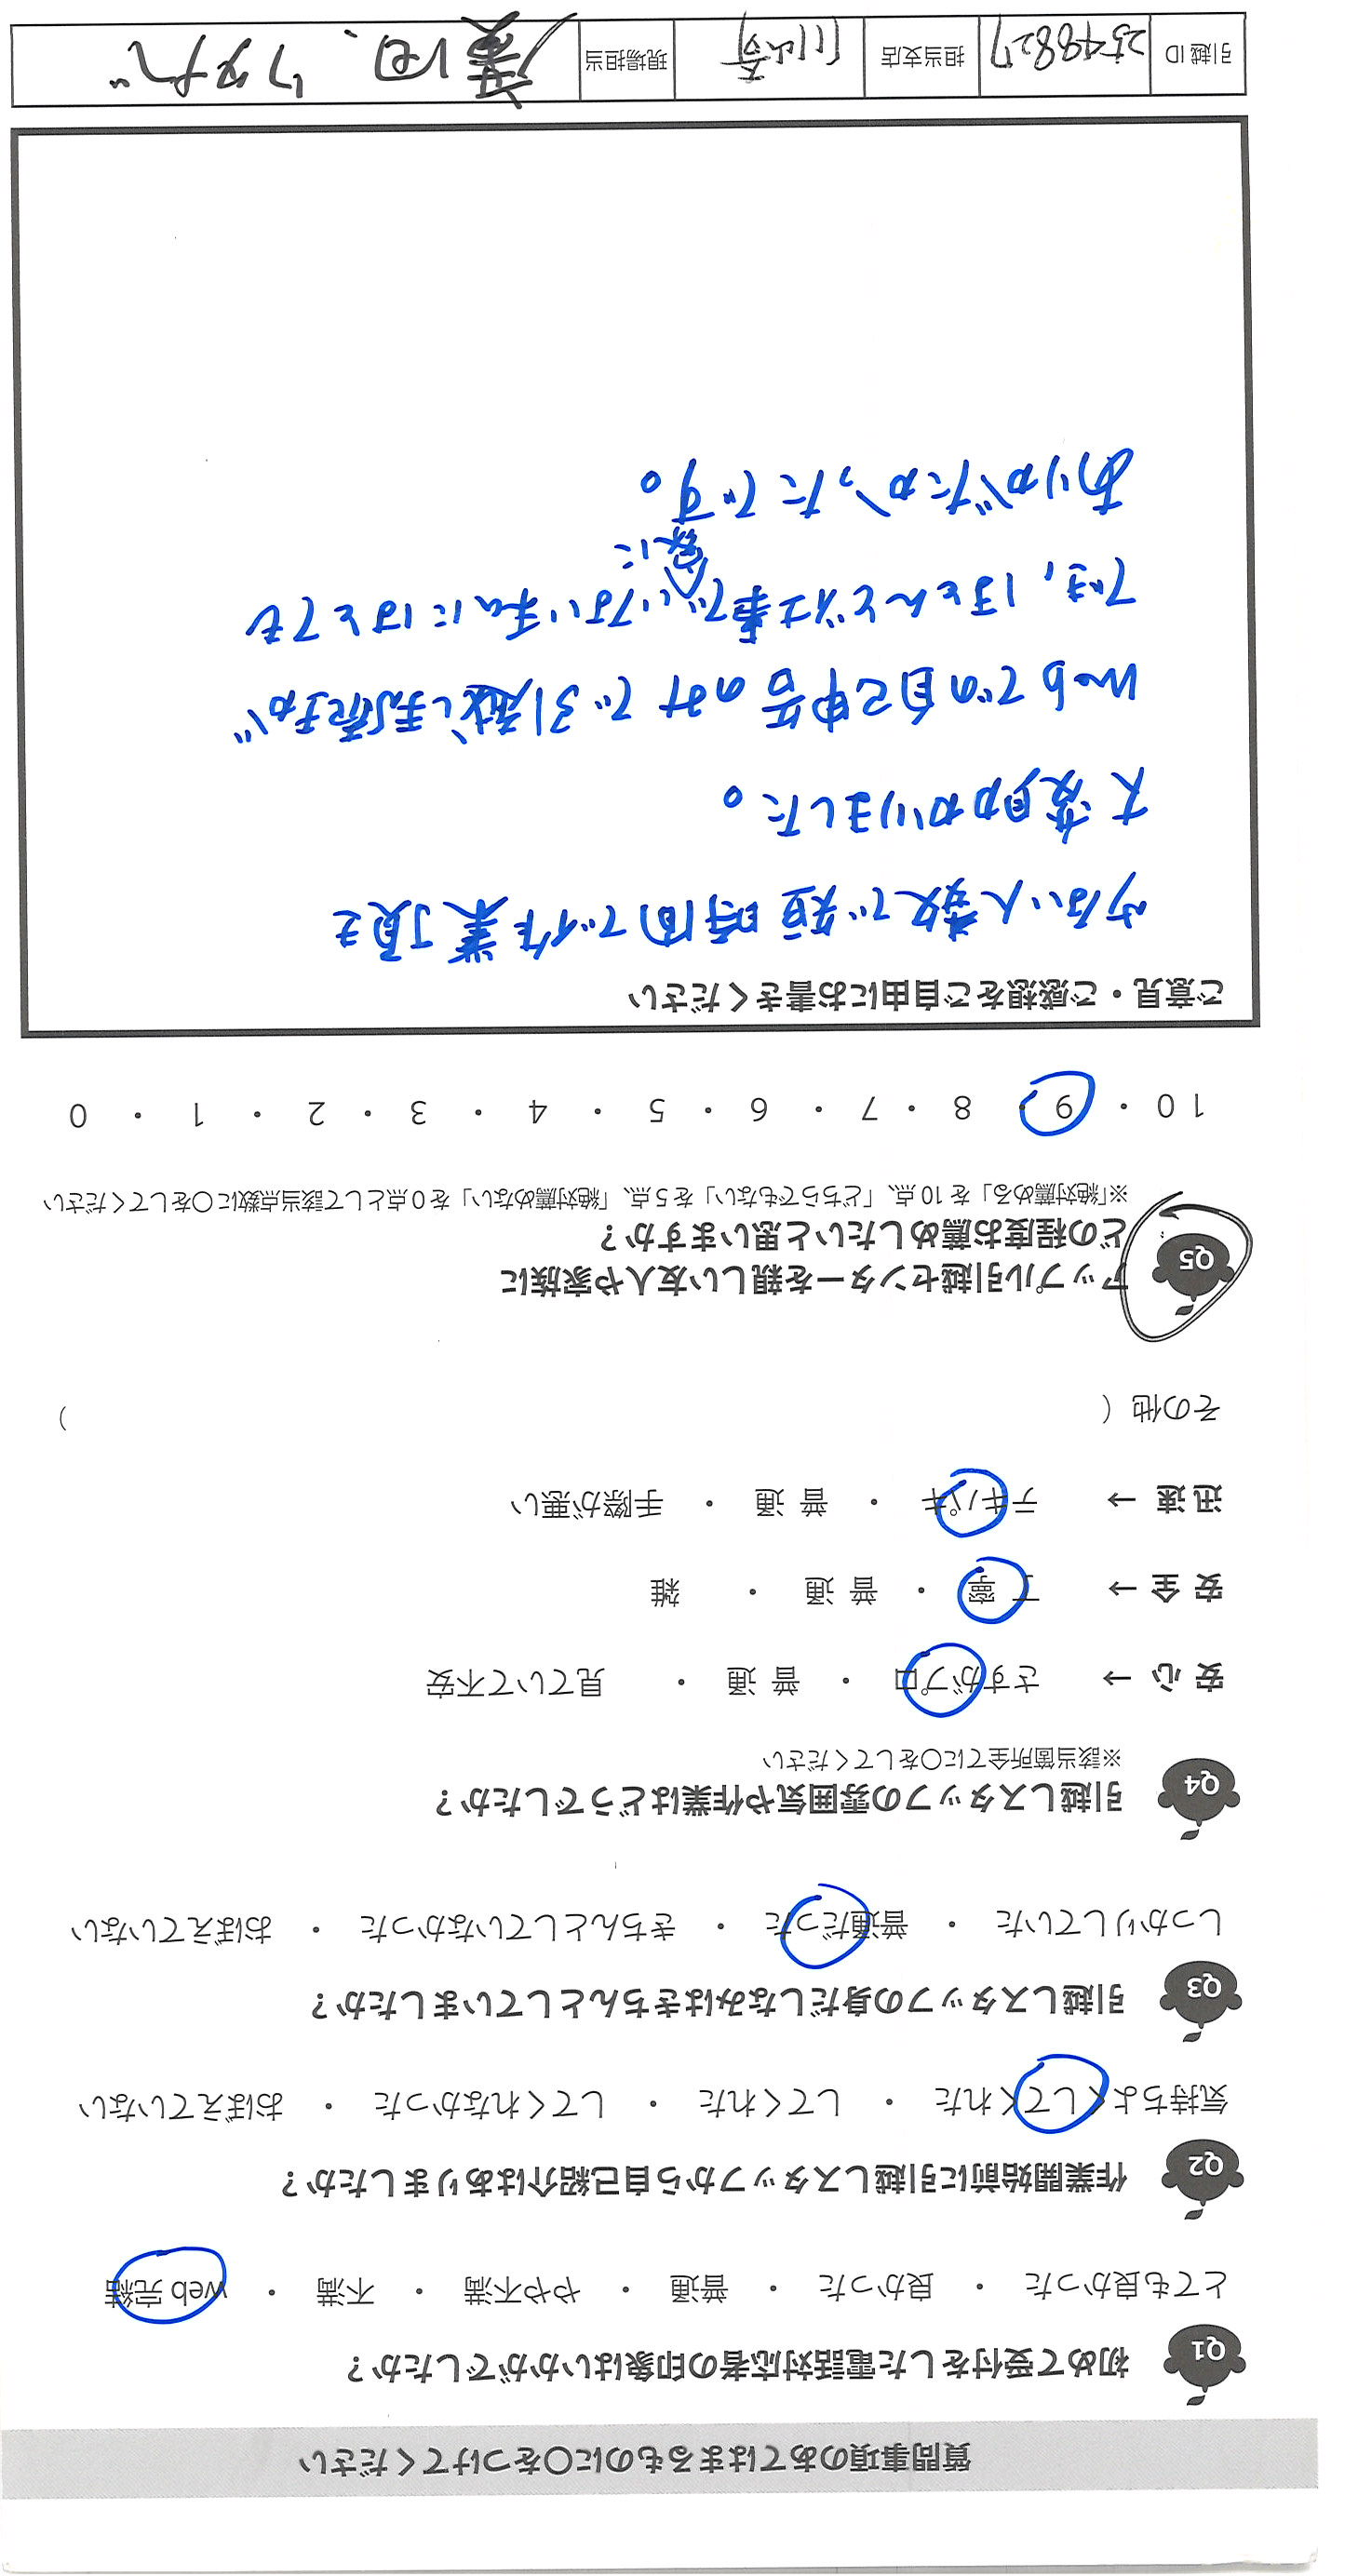 質問事項のあてはまるものに〇をつけてください
Q1 初めて受付をした電話対応者の印象はいかがでしたか？
とても良かった ・ 良かった ・ 普通 ・ やや不満 ・ 不満 ・ web 完結
Q2 作業開始前に引越しスタッフから自己紹介はありましたか？
気持ちよくしてくれた ・ してくれた ・ してくれなかった ・ おぼえていない
Q3 引越しスタッフの身だしなみはきちんとしていましたか？
しっかりしていた ・ 普通だった ・ きちんとしていなかった ・ おぼえていない
Q4 引越しスタッフの雰囲気や作業はどうでしたか？
※該当箇所全てに〇をしてください
安心 → さすがプロ ・ 普通 ・ 見ていて不安
安全 → 丁寧 ・ 普通 ・ 雑
迅速 → テキパキ ・ 普通 ・ 手際が悪い
その他（ ）
Q5 アップル引越センターを親しい友人や家族に
どの程度お薦めしたいと思いますか？
※「絶対薦める」を 10 点、「どちらでもない」を 5 点、「絶対薦めない」を 0 点として該当点数に〇をしてください
10 ・ 9 ・ 8 ・ 7 ・ 6 ・ 5 ・ 4 ・ 3 ・ 2 ・ 1 ・ 0
ご意見・ご感想をご自由にお書きください
少ない人数で短時間で作業頂き
大変助かりました。
Webでの自己申告のみで引越し見積まが
でき、ほとんど仕事で家にいない私にはとても
ありがたかったです。
引越 ID 2549827 担当支店 川崎 現場担当 濱田、ワタナベ